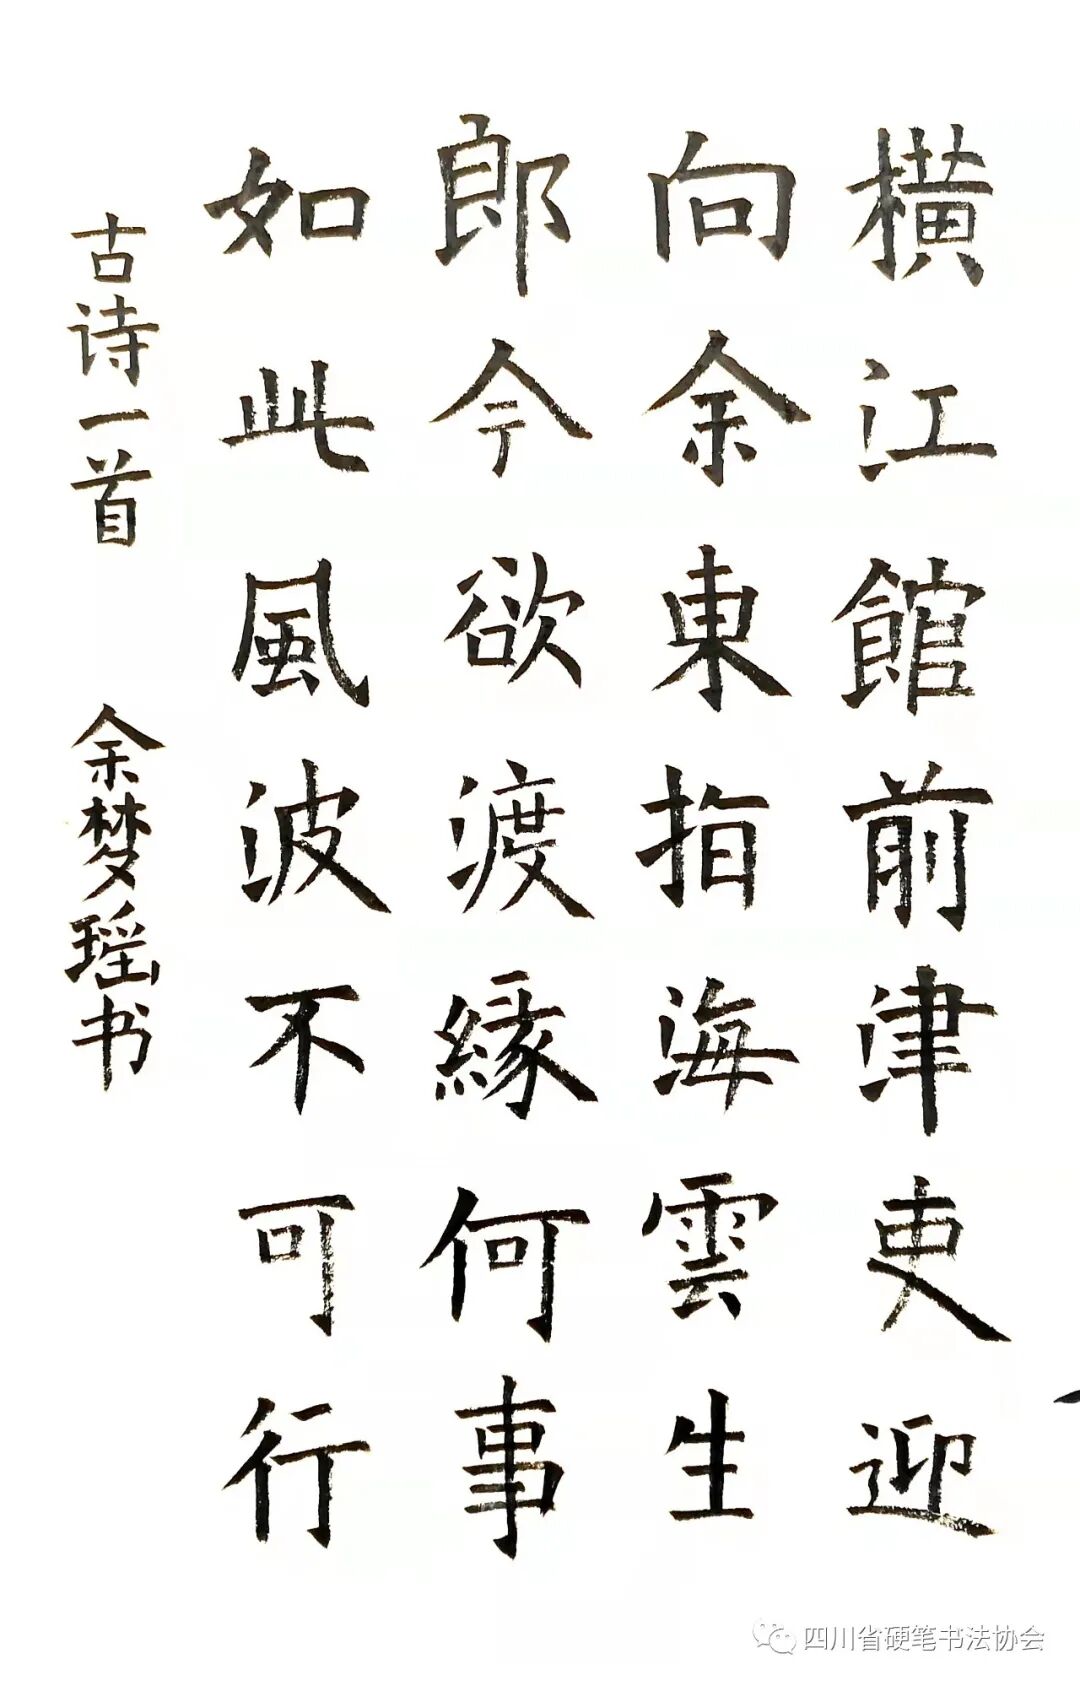 橫江館前津吏迎
向余東指海雲生
郎今欲渡緣何事
如此風波不可行
古诗一首 余梦瑶书
四川省硬笔书法协会